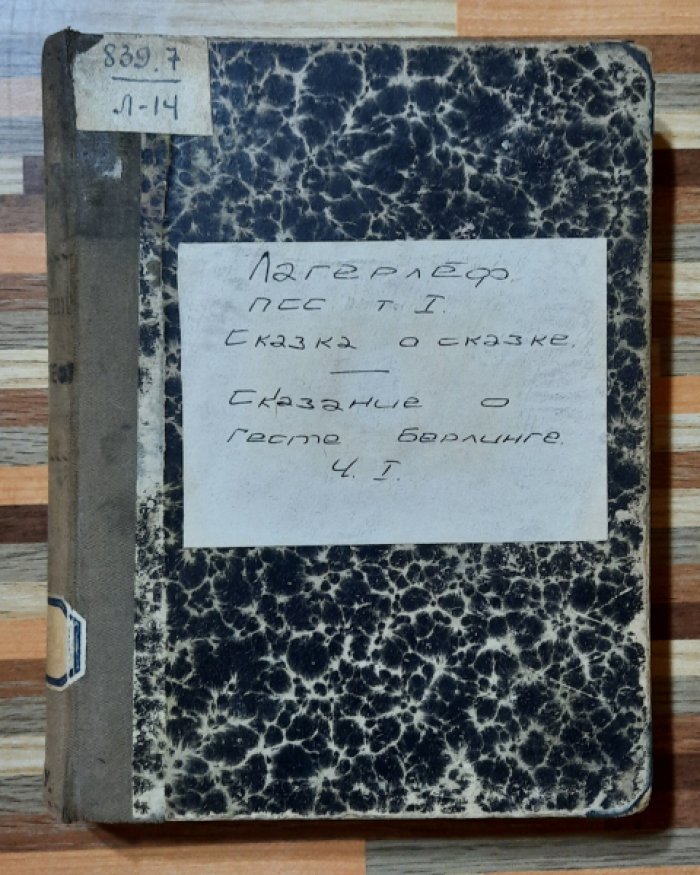 839.7
Л-14
Лагерлёф.
ПСС т. I.
Сказка о сказке.
—
Сказание о
Гесте Берлинге.
Ч. I.